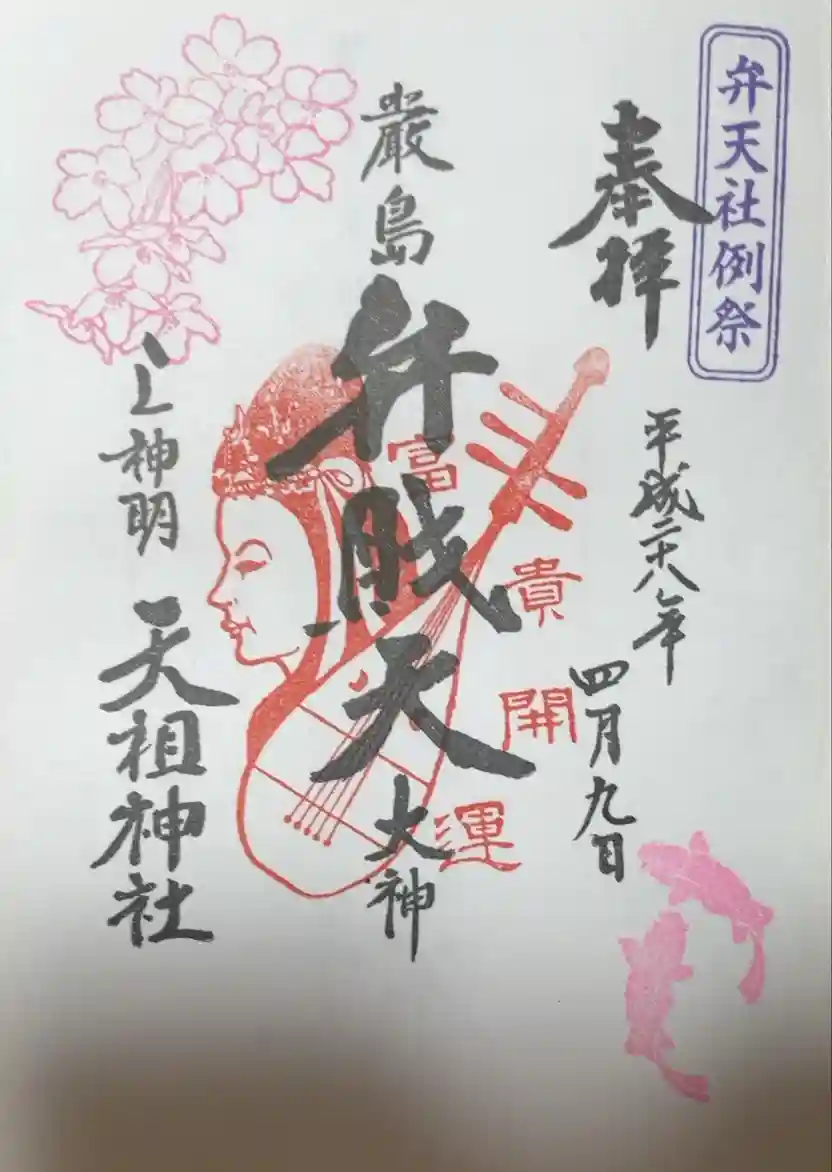 弁天社例祭
奉拝
平成二十八年
四月九日
富貴開運
厳島弁財天大神
上神明 天祖神社